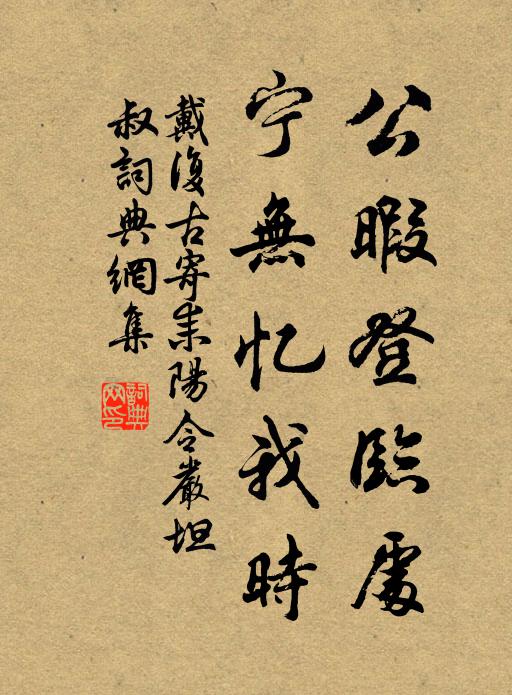 公暇登臨處
宁無忆我時
戴復古寄耒陽令嚴坦
叔詞典網集
詞典
网印